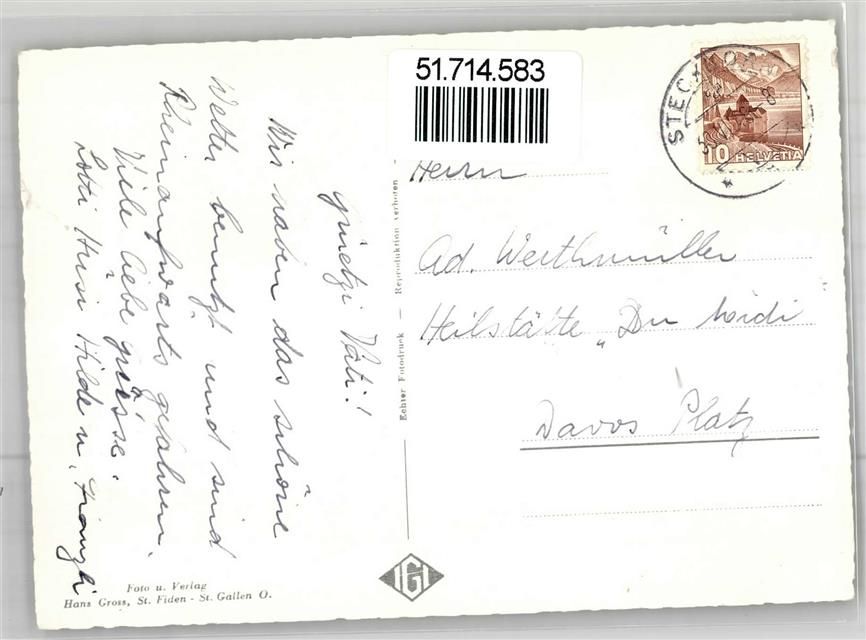 51.714.583
STECKBORN
10 HELVETIA
Herrn
Ad. Werthmüller
Heilstätte „Du Midi
Davos Platz
Grüetzi Vati!
Wir haben das schöne
Wetter benutzt und sind
Rheinaufwärts gefahren.
Viele liebe grüsse.
Hüsi Hilde u. Fränzli
Echter Fotodruck — Reproduktion verboten
IGI
Foto u. Verlag
Hans Gross, St. Fiden - St. Gallen O.